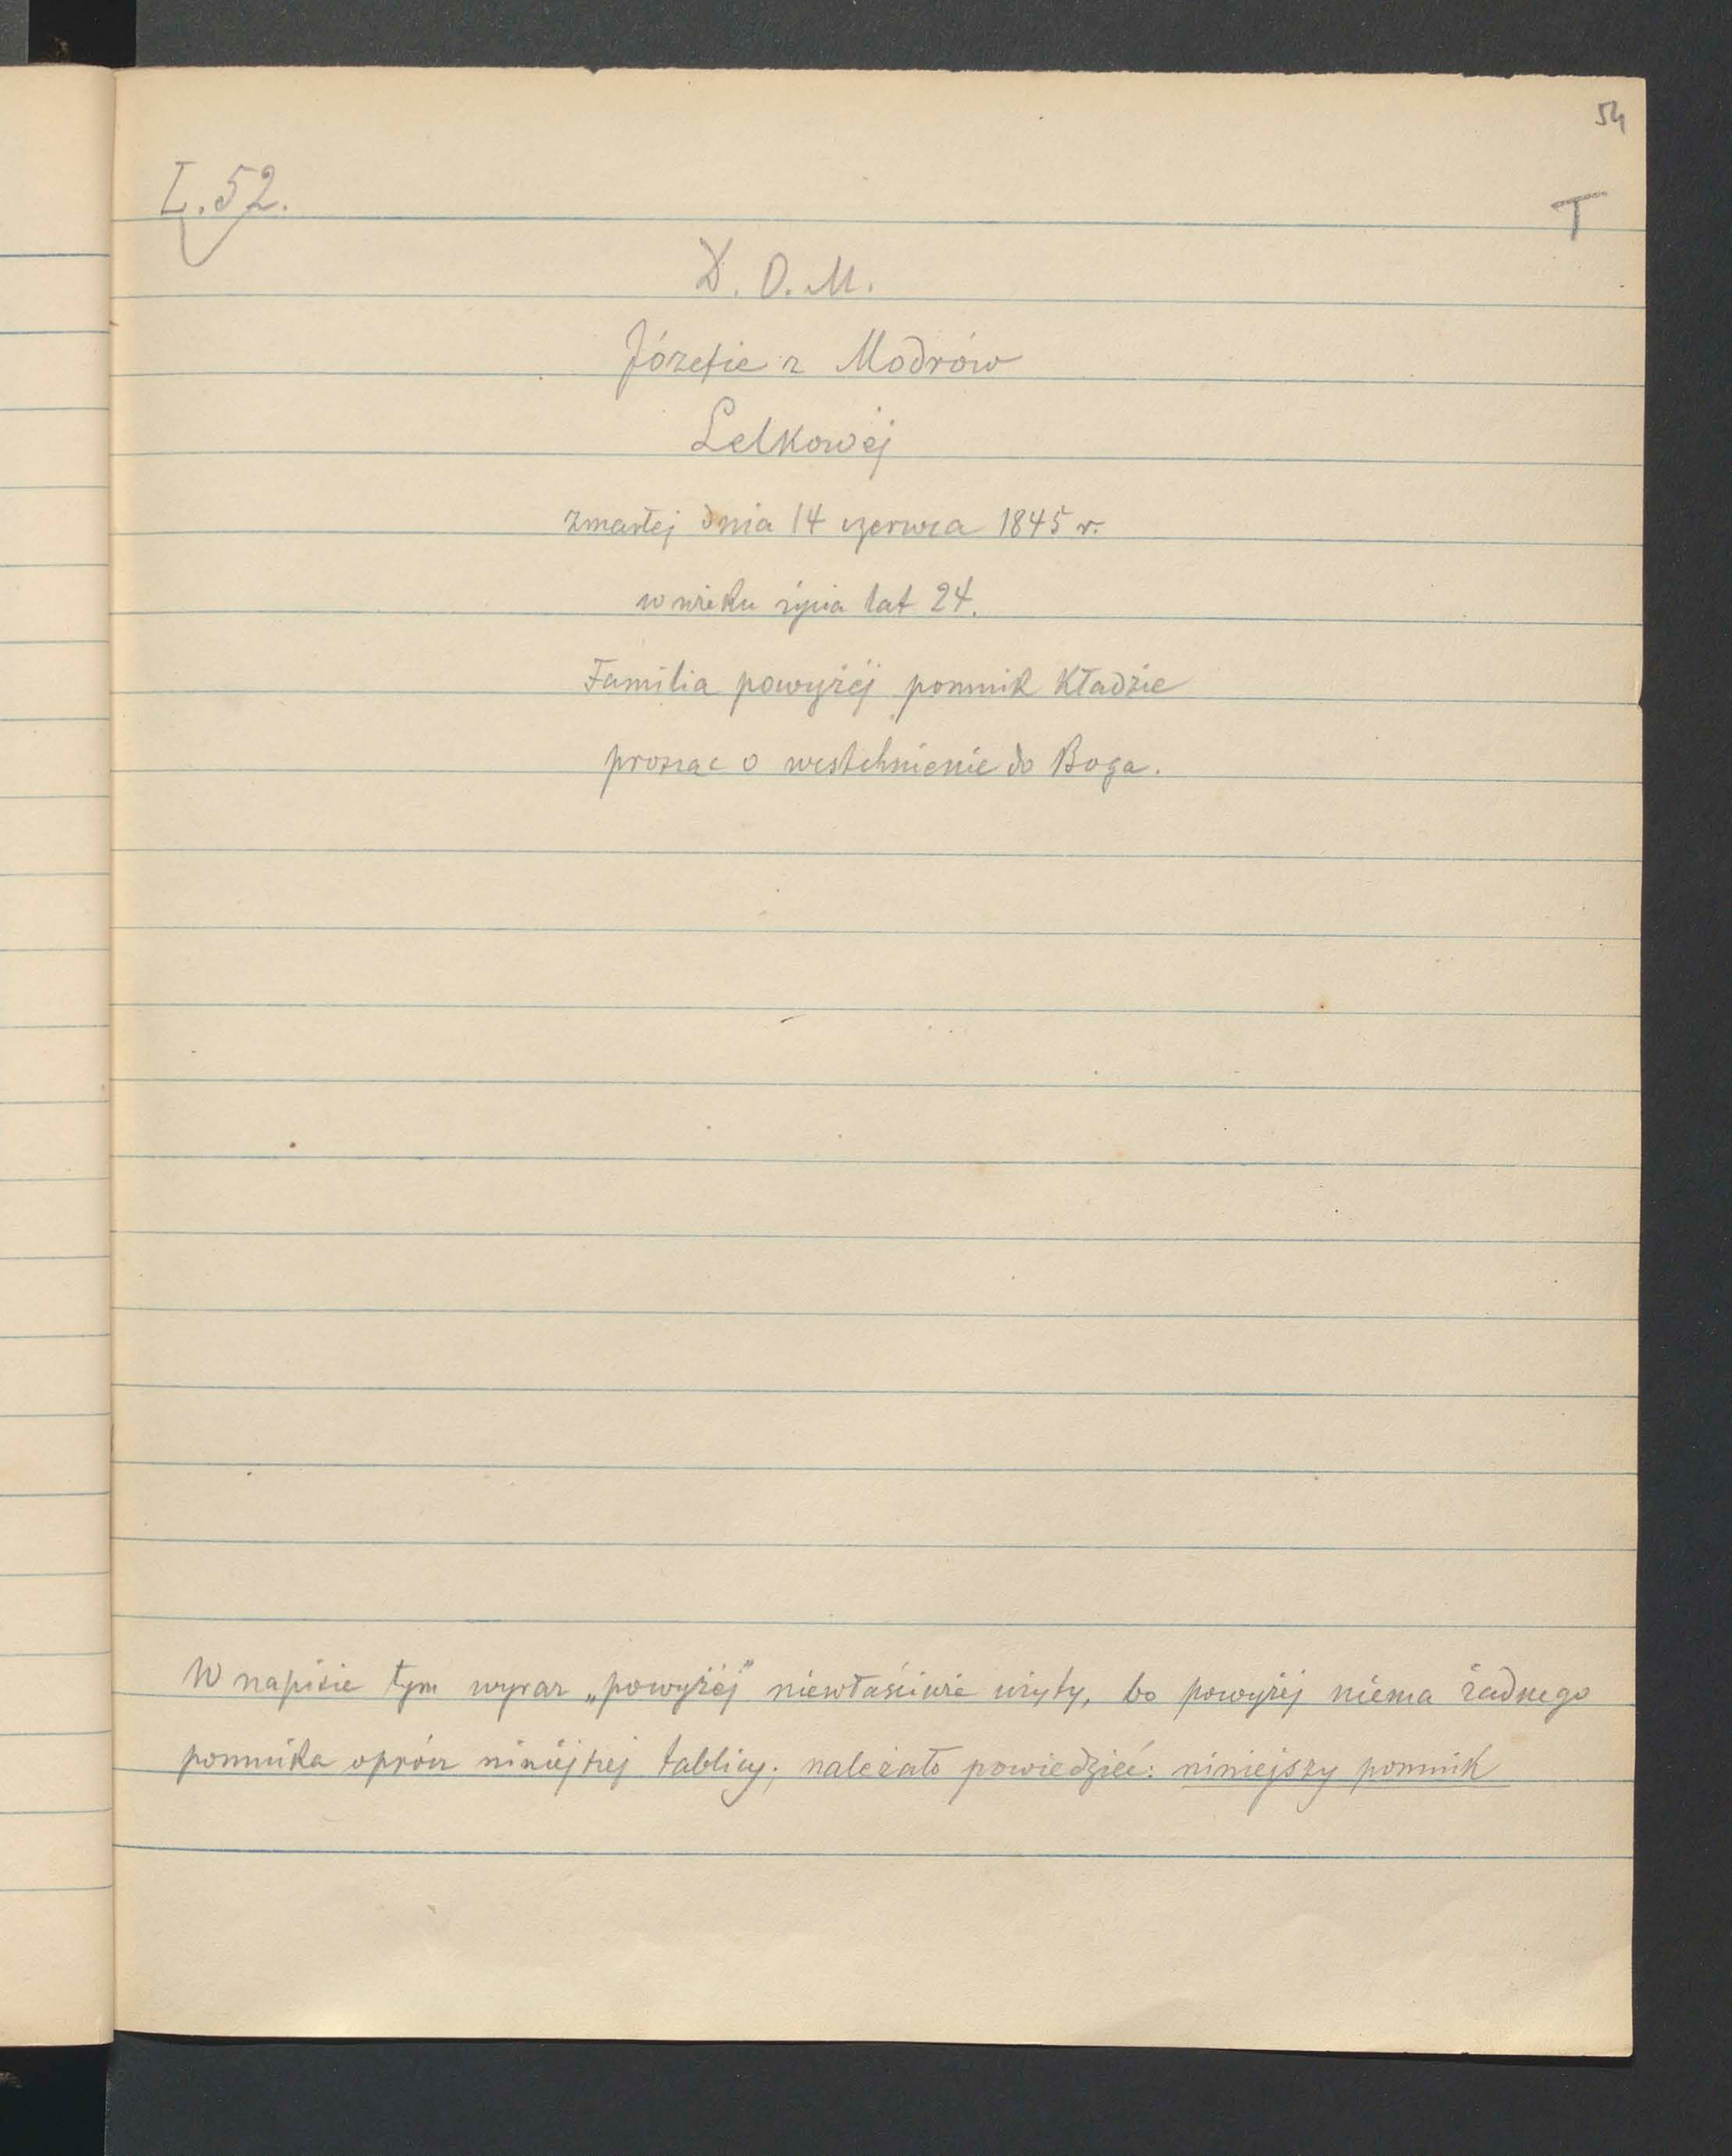 54
L. 52.
T
D. O. M.
Józefie z Modrów
Lelkowéj
zmarłej dnia 14 czerwca 1845 r.
w wieku życia lat 24.
Familia powyżéj pomnik kładzie
prosząc o westchnienie do Boga.
W napisie tym wyraz „powyżéj" niewłaściwie użyty, bo powyżéj niema żadnego
pomnika oprócz niniejszej tablicy; należało powiedzieć: niniejszy pomnik